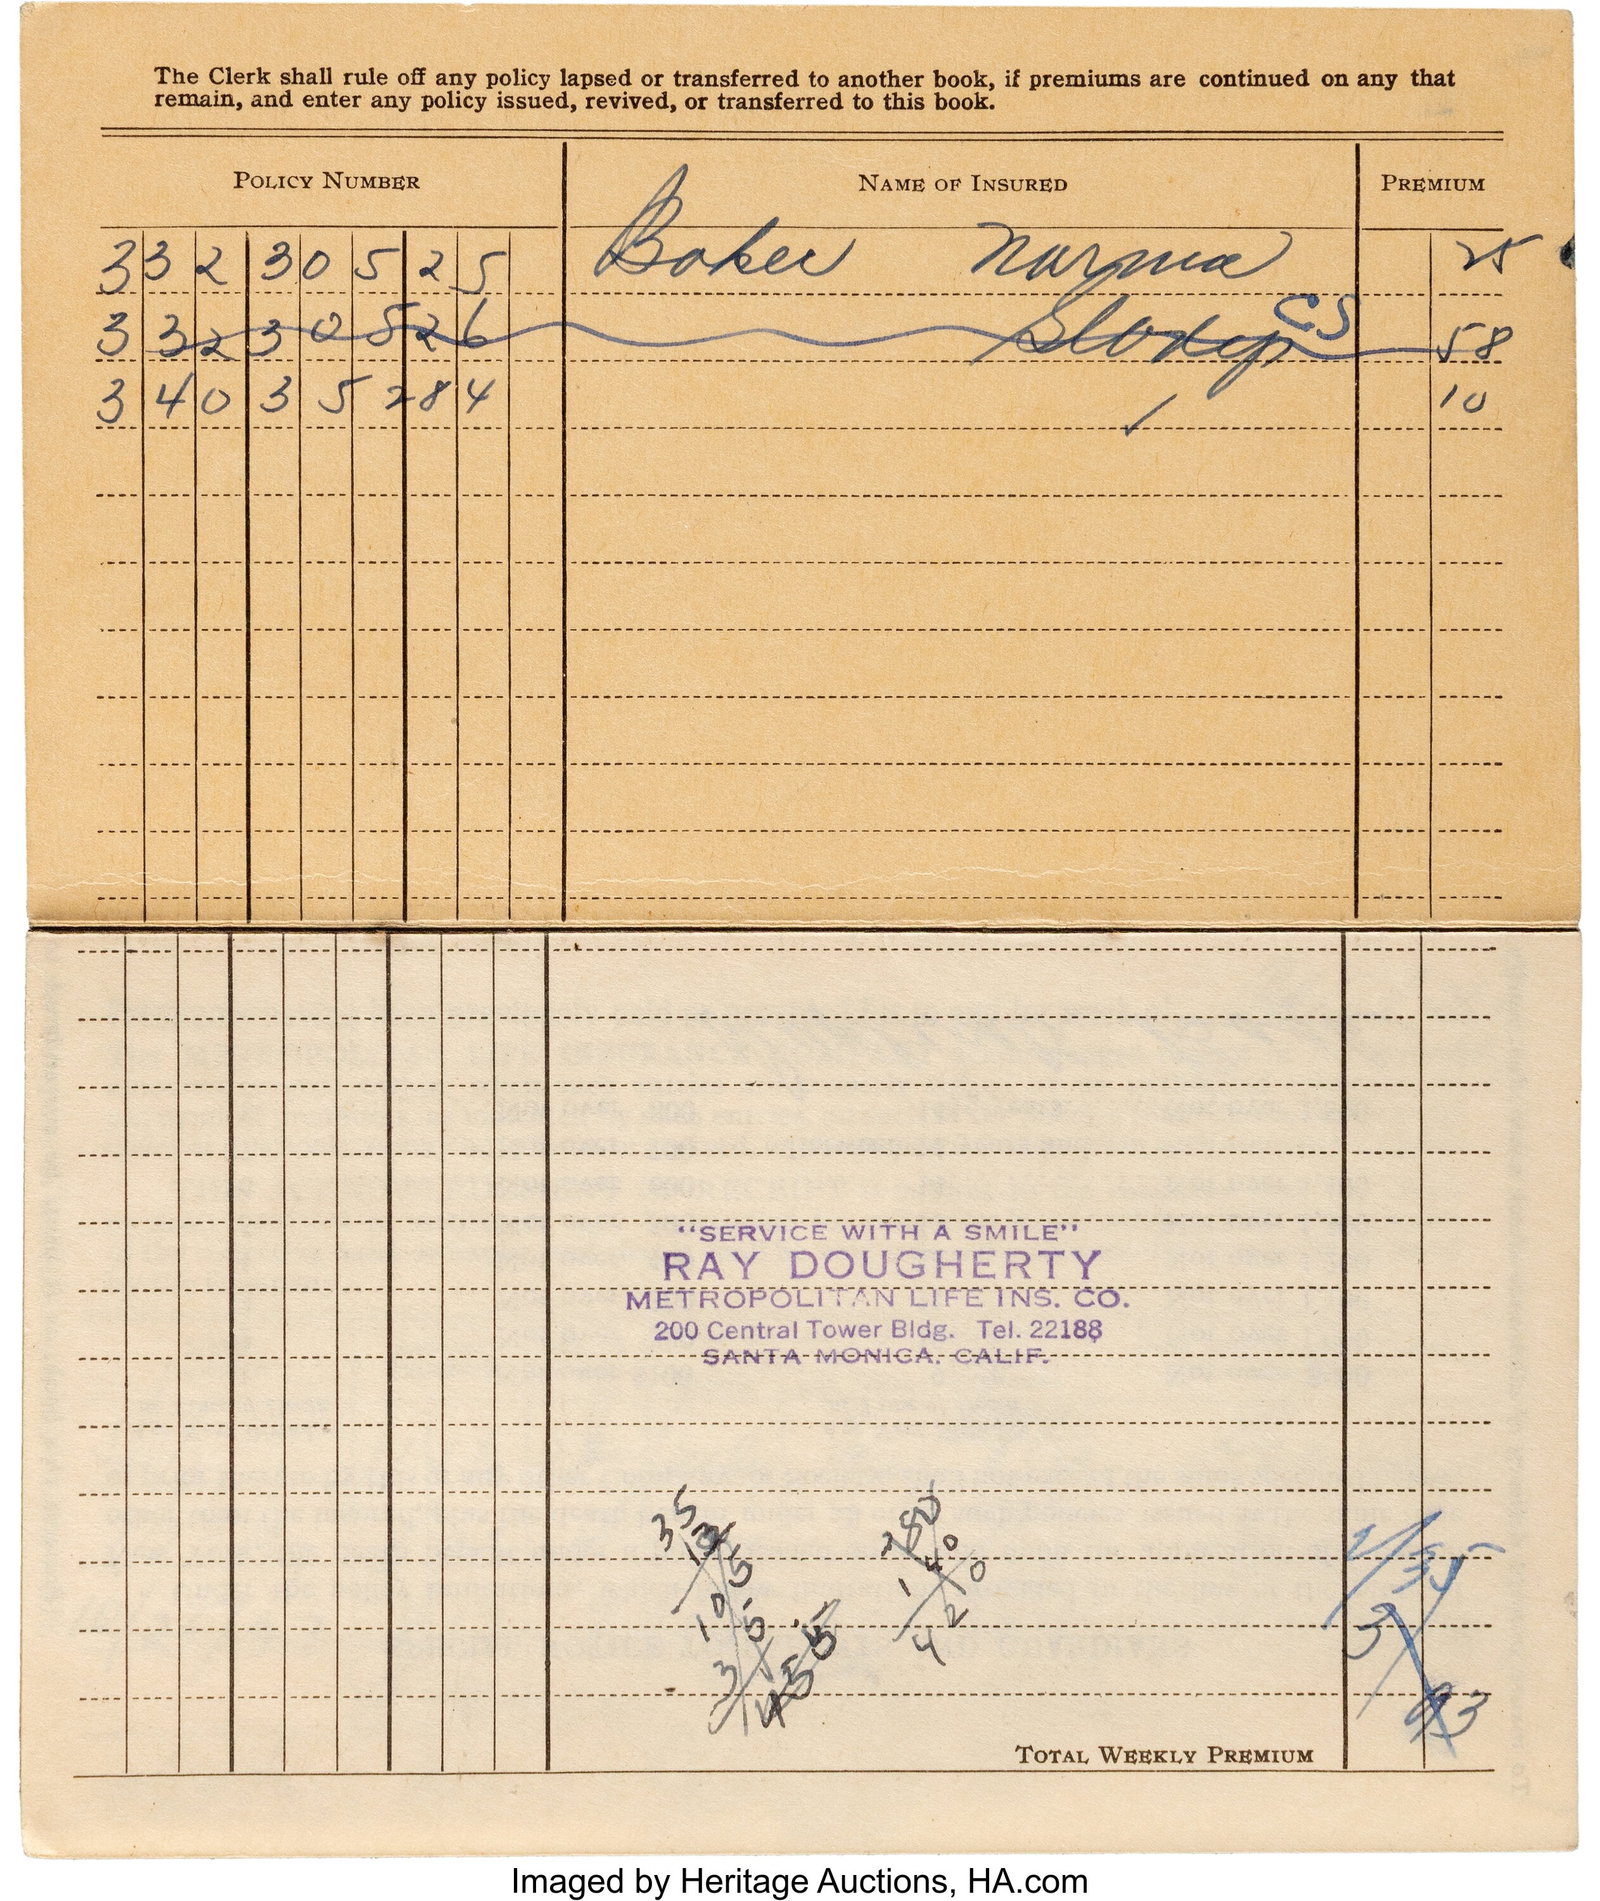 The Clerk shall rule off any policy lapsed or transferred to another book, if premiums are continued on any that
remain, and enter any policy issued, revived, or transferred to this book.
POLICY NUMBER NAME OF INSURED PREMIUM
33230525 Baker Norma 25
33230526 Gladys CS 58
34035284 ✓ 10
"SERVICE WITH A SMILE"
RAY DOUGHERTY
METROPOLITAN LIFE INS. CO.
200 Central Tower Bldg. Tel. 22188
SANTA MONICA. CALIF.
35
280
140
420
93
TOTAL WEEKLY PREMIUM
Imaged by Heritage Auctions, HA.com